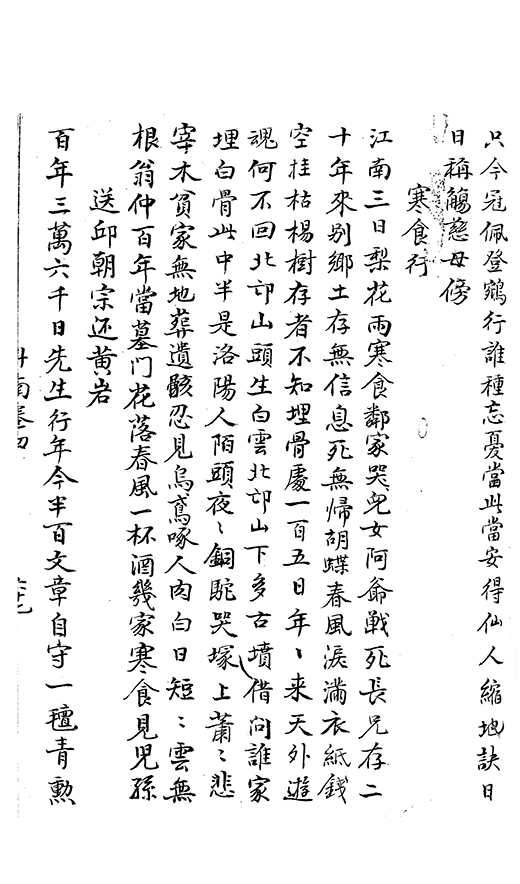 只今冠佩登鵷行誰種忘憂當此當安得仙人縮地訣日
日稱觴慈母傍
寒食行
江南三日梨花雨寒食鄰家哭兒女阿爺戰死長兄存二
十年來別鄉土存無信息死無歸胡蝶春風淚滿衣紙錢
空挂枯楊樹存者不知埋骨處一百五日年〻来天外遊
魂何不回北邙山頭生白雲北邙山下多古墳借問誰家
埋白骨此中半是洛陽人陌頭夜〻銅駝哭塚上蕭〻悲
宰木貧家無地葬遺骸忍見烏鳶啄人肉白日短〻雲無
根翁仲百年當墓門花落春風一杯酒幾家寒食見兒孫
送邱朝宗还黄岩
百年三萬六千日先生行年今半百文章自守一氊青勲